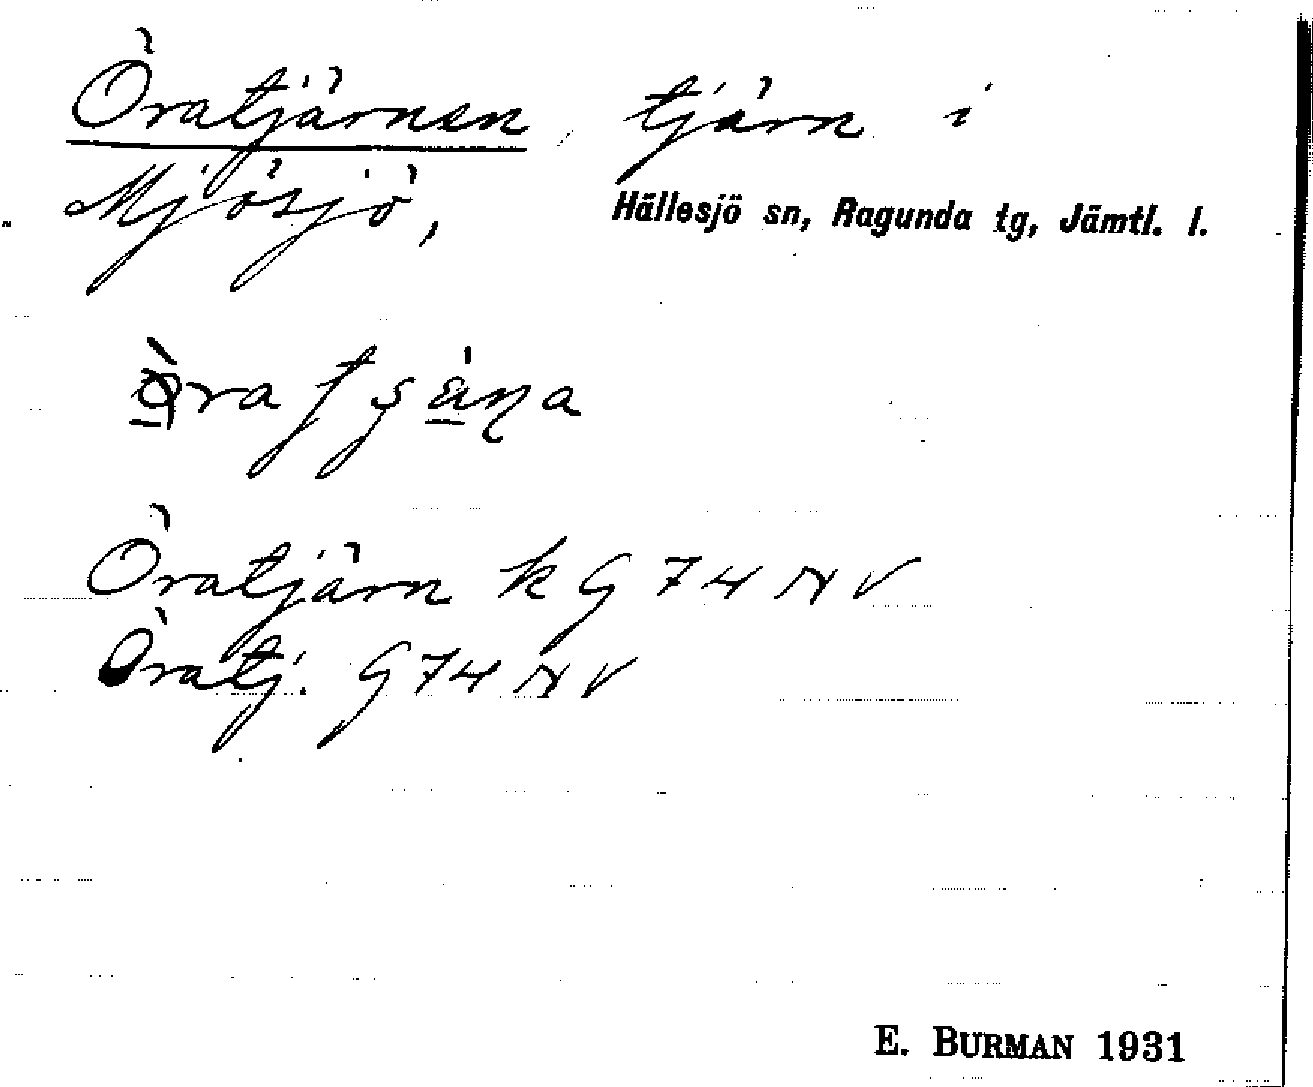 Öratjärnen, tjärn i
Mjösjö, Hällesjö sn, Ragunda tg, Jämtl. l.
Öratjärn k G 74 NV
Öratj. G 74 NV
E. BURMAN 1931